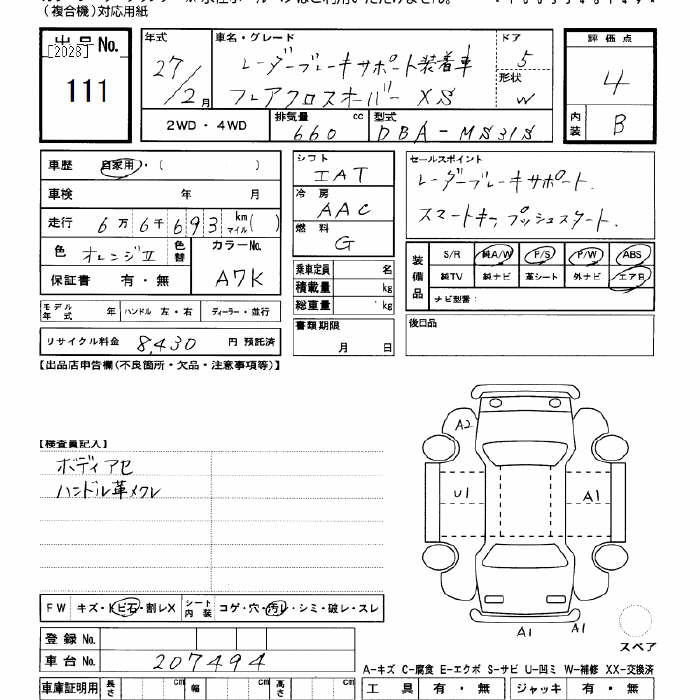 (複合機)対応用紙
出品No.
[2028]
111
年式
27/2月
車名・グレード
レーダーブレーキサポート装着車
フレアクロスオーバー XS
ドア
5
形状
W
評価点
4
内装
B
2WD・4WD
排気量 cc
660
型式
DBA-MS31S
車歴 自家用・( )
車検 年 月
走行 6万6千693 km マイル( )
色 オレンジII 色替
カラーNo. A7K
保証書 有・無
モデル年式 年 ハンドル 左・右 ディーラー・並行
リサイクル料金 8,430 円 預託済
シフト
IAT
冷房
AAC
燃料
G
乗車定員 名
積載量 kg
総重量 kg
書類期限
月 日
セールスポイント
レーダーブレーキサポート.
スマートキー, プッシュスタート.
装備品
S/R 純A/W P/S P/W ABS
純TV 純ナビ 革シート 外ナビ エアB
ナビ型番:
後日品
【出品店申告欄(不良箇所・欠品・注意事項等)】
【検査員記入】
ボディアセ
ハンドル革メクレ
A2
U1
A1
A1
A1
スペア
FW キズ・トビ石・割レX シート内装 コゲ・穴・汚レ・シミ・破レ・スレ
登録No.
車台No. 207494
車庫証明用 長さ cm 幅 cm 高さ cm
A-キズ C-腐食 E-エクボ S-サビ U-凹ミ W-補修 XX-交換済
工具 有・無 ジャッキ 有・無